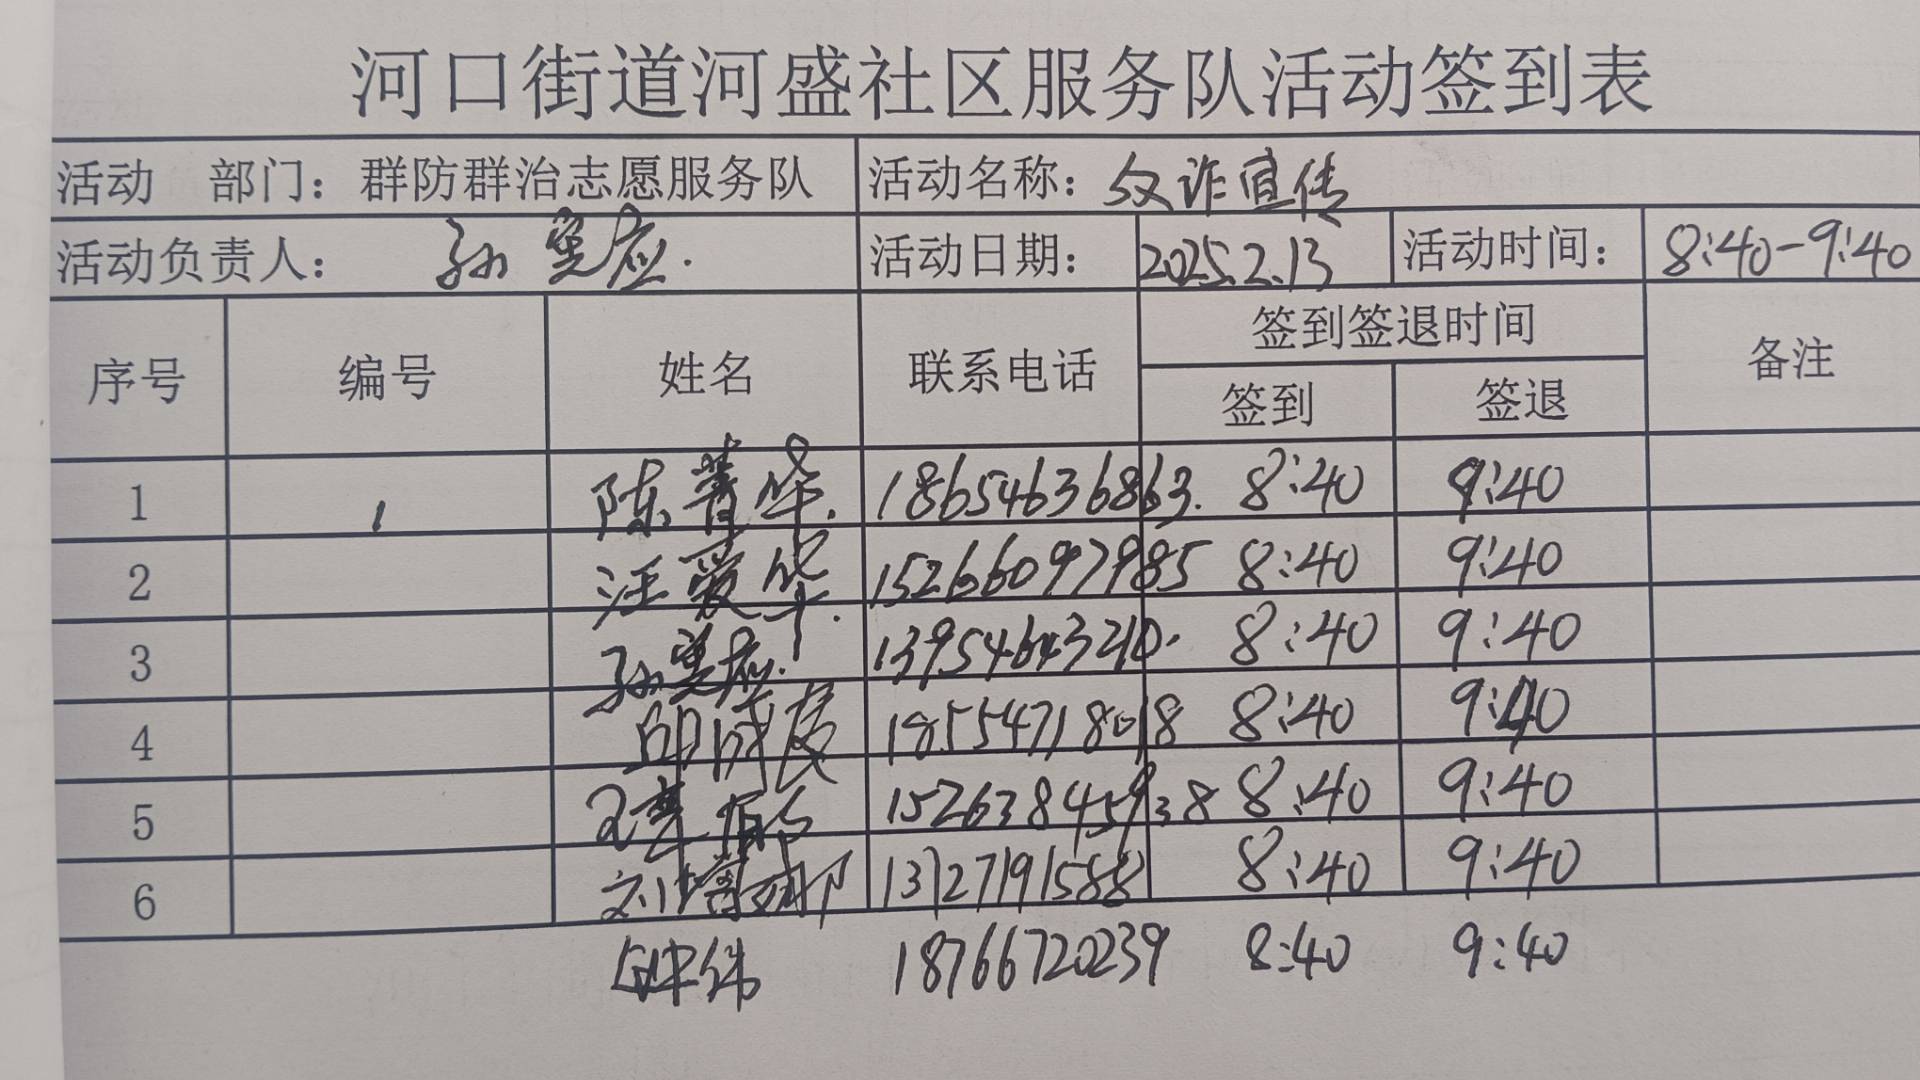 河口街道河盛社区服务队活动签到表
活动 部门：群防群治志愿服务队 活动名称：反诈宣传
活动负责人：孙 应. 活动日期：2025.2.13 活动时间：8:40-9:40
序号 编号 姓名 联系电话 签到签退时间 备注
签到 签退
1 1 陈菁华. 18654636863. 8:40 9:40
2 汪爱华. 15266097985 8:40 9:40
3 孙 应. 13954643210. 8:40 9:40
4 邱成 18554718018 8:40 9:40
5 15263845938 8:40 9:40
6 刘 13727191588 8:40 9:40
伟 18766720239 8:40 9:40